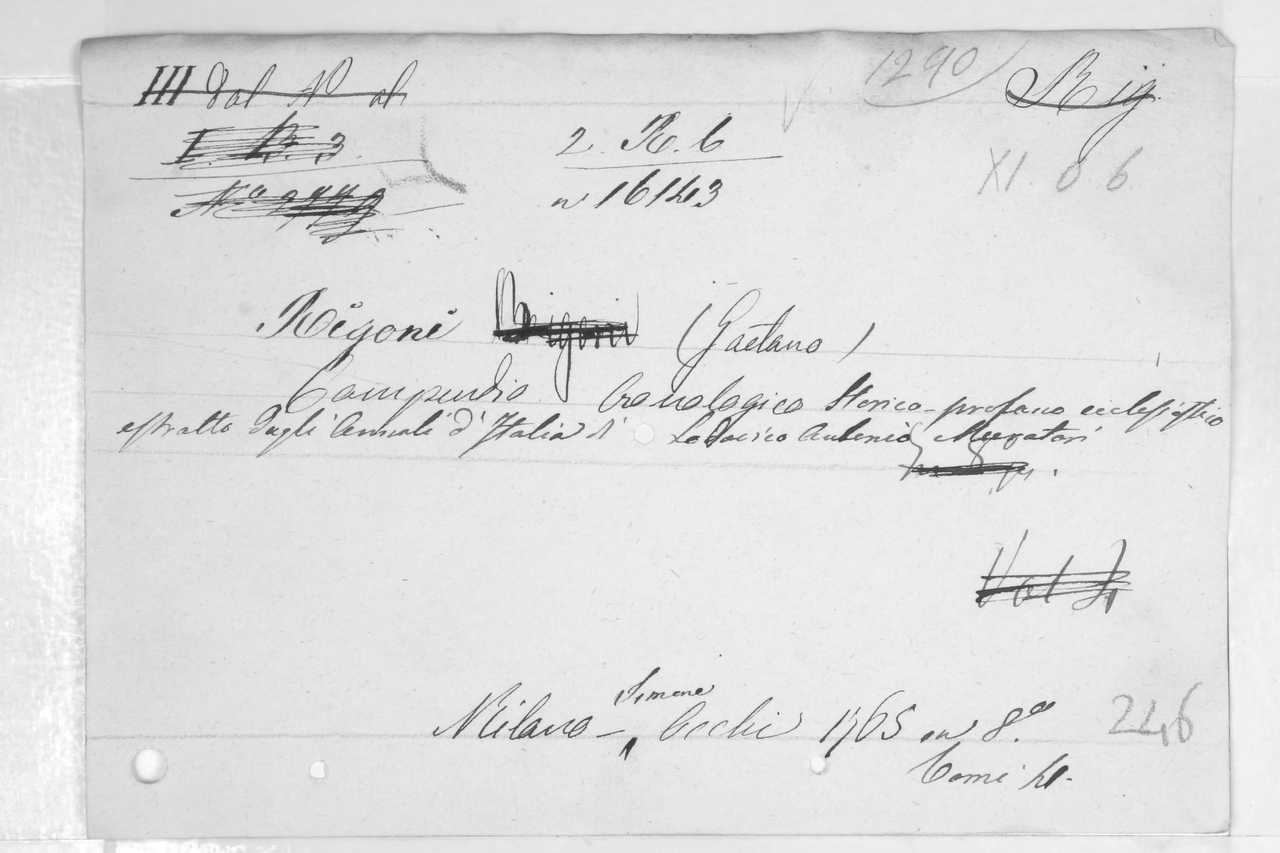 1290
III dal N° al
Rig.
I. R. 3.
2. R. 6
XI. O 6
N°
n 16143
Rigoni (Gaetano)
Compendio Cronologico Storico-profano ecclesiastico
estratto dagli Annali d'Italia di Lodovico Antonio Muratori
Vol
Simone
Milano - Occhi 1765 in 8.°
Tomi 4.
2246